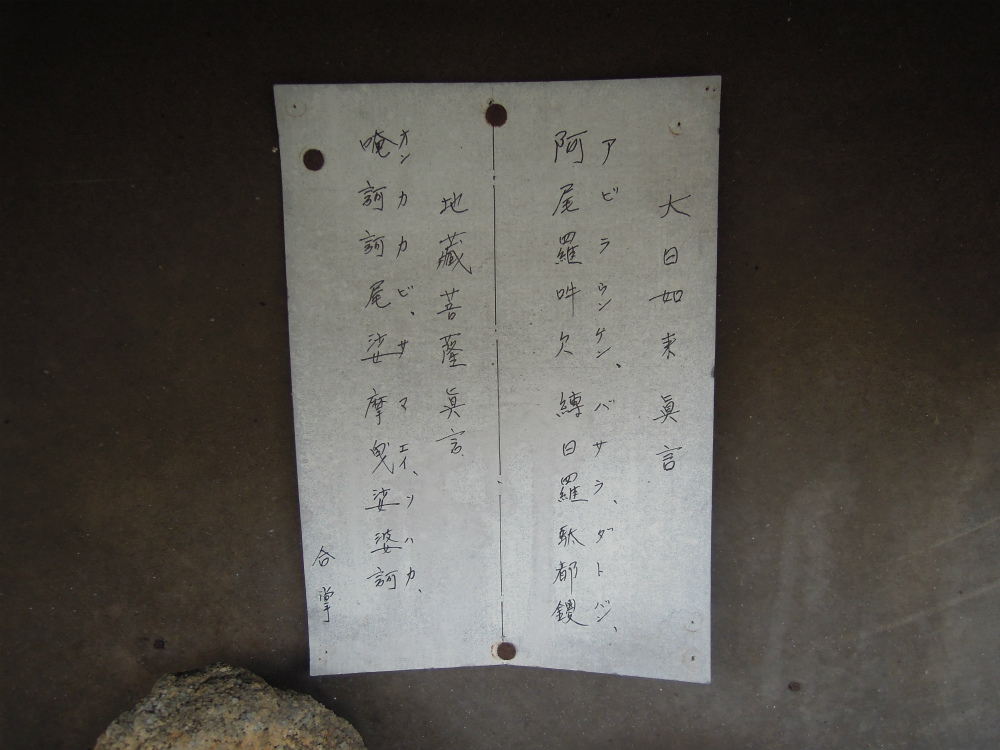 大日如来眞言
アビラウンケン、バサラ、ダトバン、
阿尾羅吽欠縛日羅駄都鑁
地蔵菩薩眞言
オンカカカビ、サマエイ、ソハカ、
唵訶訶尾娑摩曳娑婆訶
合掌